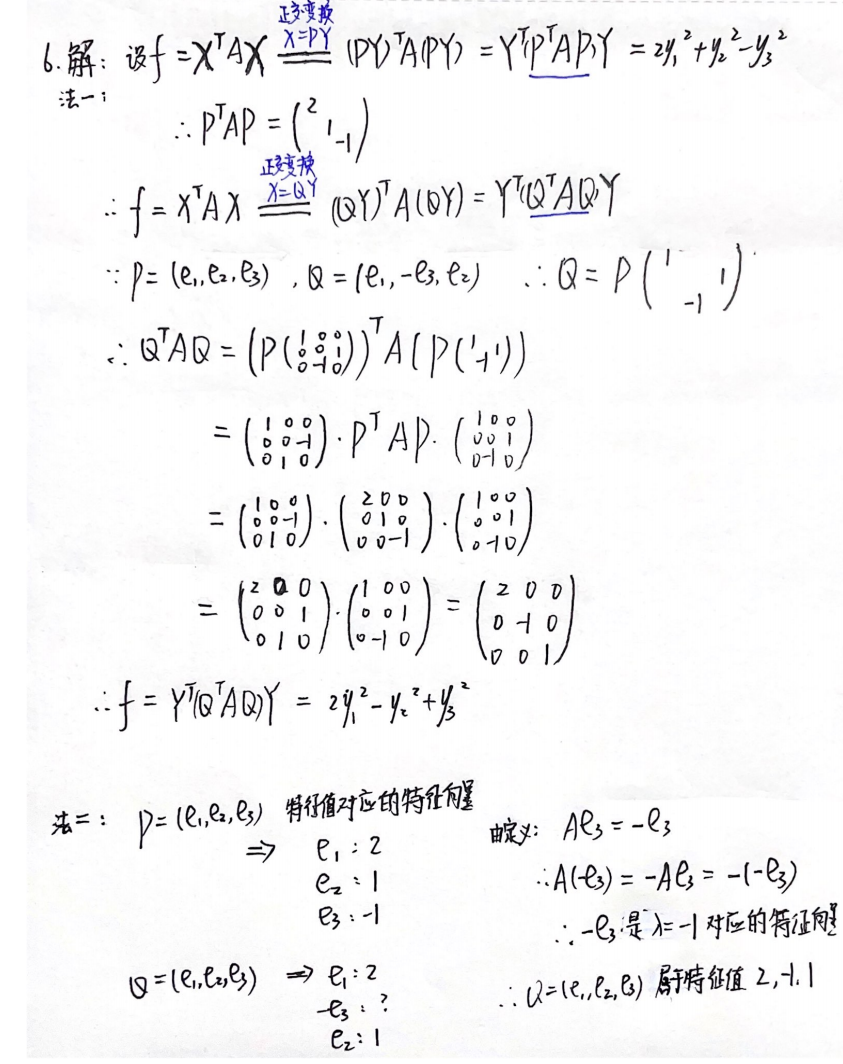 6.解：设f=XᵀAX ==(正交变换 X=PY)== (PY)ᵀA(PY) = Yᵀ(PᵀAP)Y = 2y₁²+y₂²-y₃²
法一：
∴ PᵀAP = (2 1 -1)
∴ f = XᵀAX ==(正交变换 X=QY)== (QY)ᵀA(QY) = Yᵀ(QᵀAQ)Y
∵ P=(e₁,e₂,e₃) , Q=(e₁,-e₃,e₂) ∴ Q = P(1 1 -1)
∴ QᵀAQ = (P(1 0 0; 0 0 1; 0 -1 0))ᵀA(P(1 1 -1))
= (1 0 0; 0 0 -1; 0 1 0)·PᵀAP·(1 0 0; 0 0 1; 0 -1 0)
= (1 0 0; 0 0 -1; 0 1 0)·(2 0 0; 0 1 0; 0 0 -1)·(1 0 0; 0 0 1; 0 -1 0)
= (2 0 0; 0 0 1; 0 1 0)·(1 0 0; 0 0 1; 0 -1 0) = (2 0 0; 0 -1 0; 0 0 1)
∴ f = Yᵀ(QᵀAQ)Y = 2y₁²-y₂²+y₃²
法二： P=(e₁,e₂,e₃) 特征值对应的特征向量
⇒ e₁:2
e₂:1
e₃:-1
Q=(e₁,e₂,e₃) ⇒ e₁:2
-e₃:?
e₂:1
由定义： Ae₃=-e₃
∴A(-e₃) = -Ae₃ = -(-e₃)
∴ -e₃是λ=-1对应的特征向量
∴ Q=(e₁,e₂,e₃) 属于特征值 2,-1.1